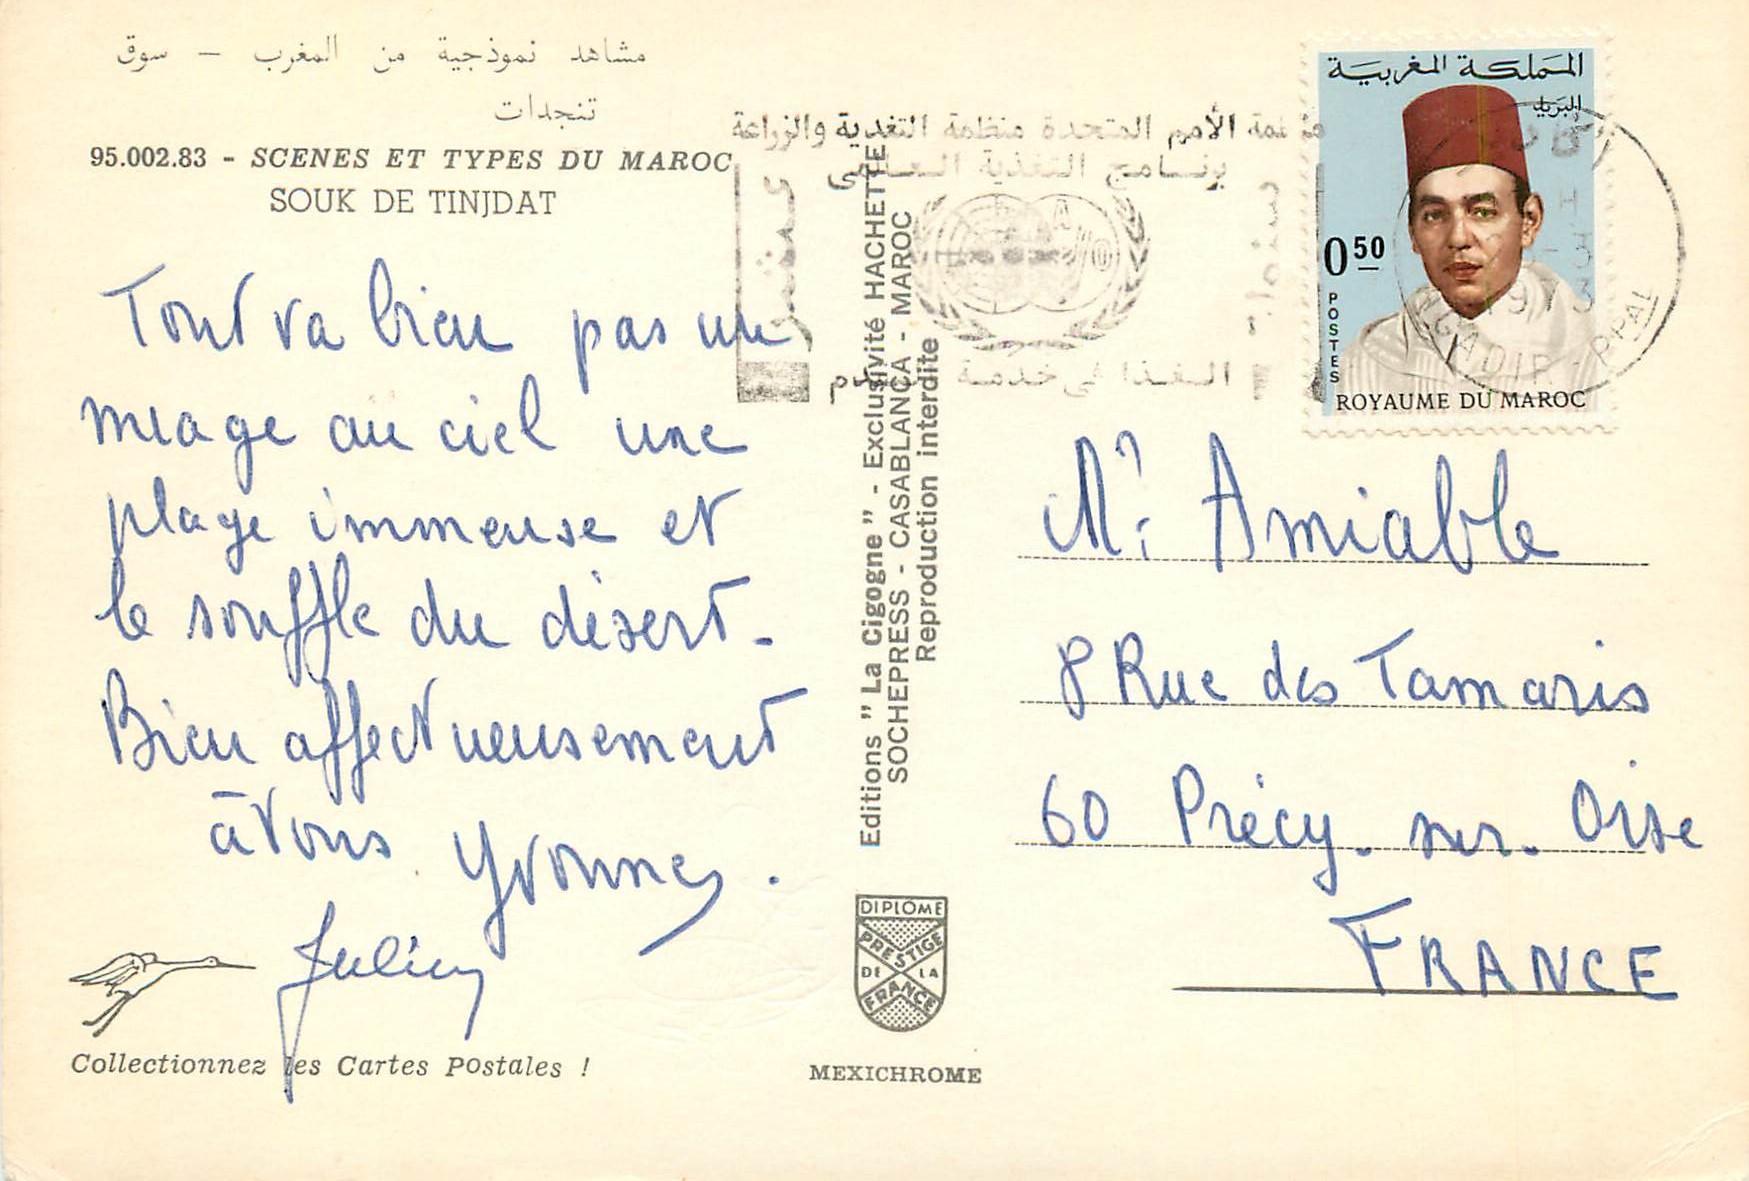 مشاهد نموذجية من المغرب – سوق
تنجدات
95.002.83 - SCENES ET TYPES DU MAROC
SOUK DE TINJDAT
Tout va bien pas un
nuage au ciel une
plage immense et
le souffle du désert -
Bien affectueusement
à vous Yvonne.
Julien
Collectionnez les Cartes Postales !
Editions " La Cigogne " - Exclusivité HACHETTE
SOCHEPRESS - CASABLANCA - MAROC
Reproduction interdite
DIPLOME
PRESTIGE
DE LA
FRANCE
MEXICHROME
منظمة الأمم المتحدة منظمة التغدية والزراعة
برنامج التغذية العالمي
الغذا في خدمة
المملكة المغربية
البريد
0.50
POSTES
ROYAUME DU MAROC
1973
AGADIR PPAL
Mr Amiable
8 Rue des Tamaris
60 Précy-sur-Oise
FRANCE